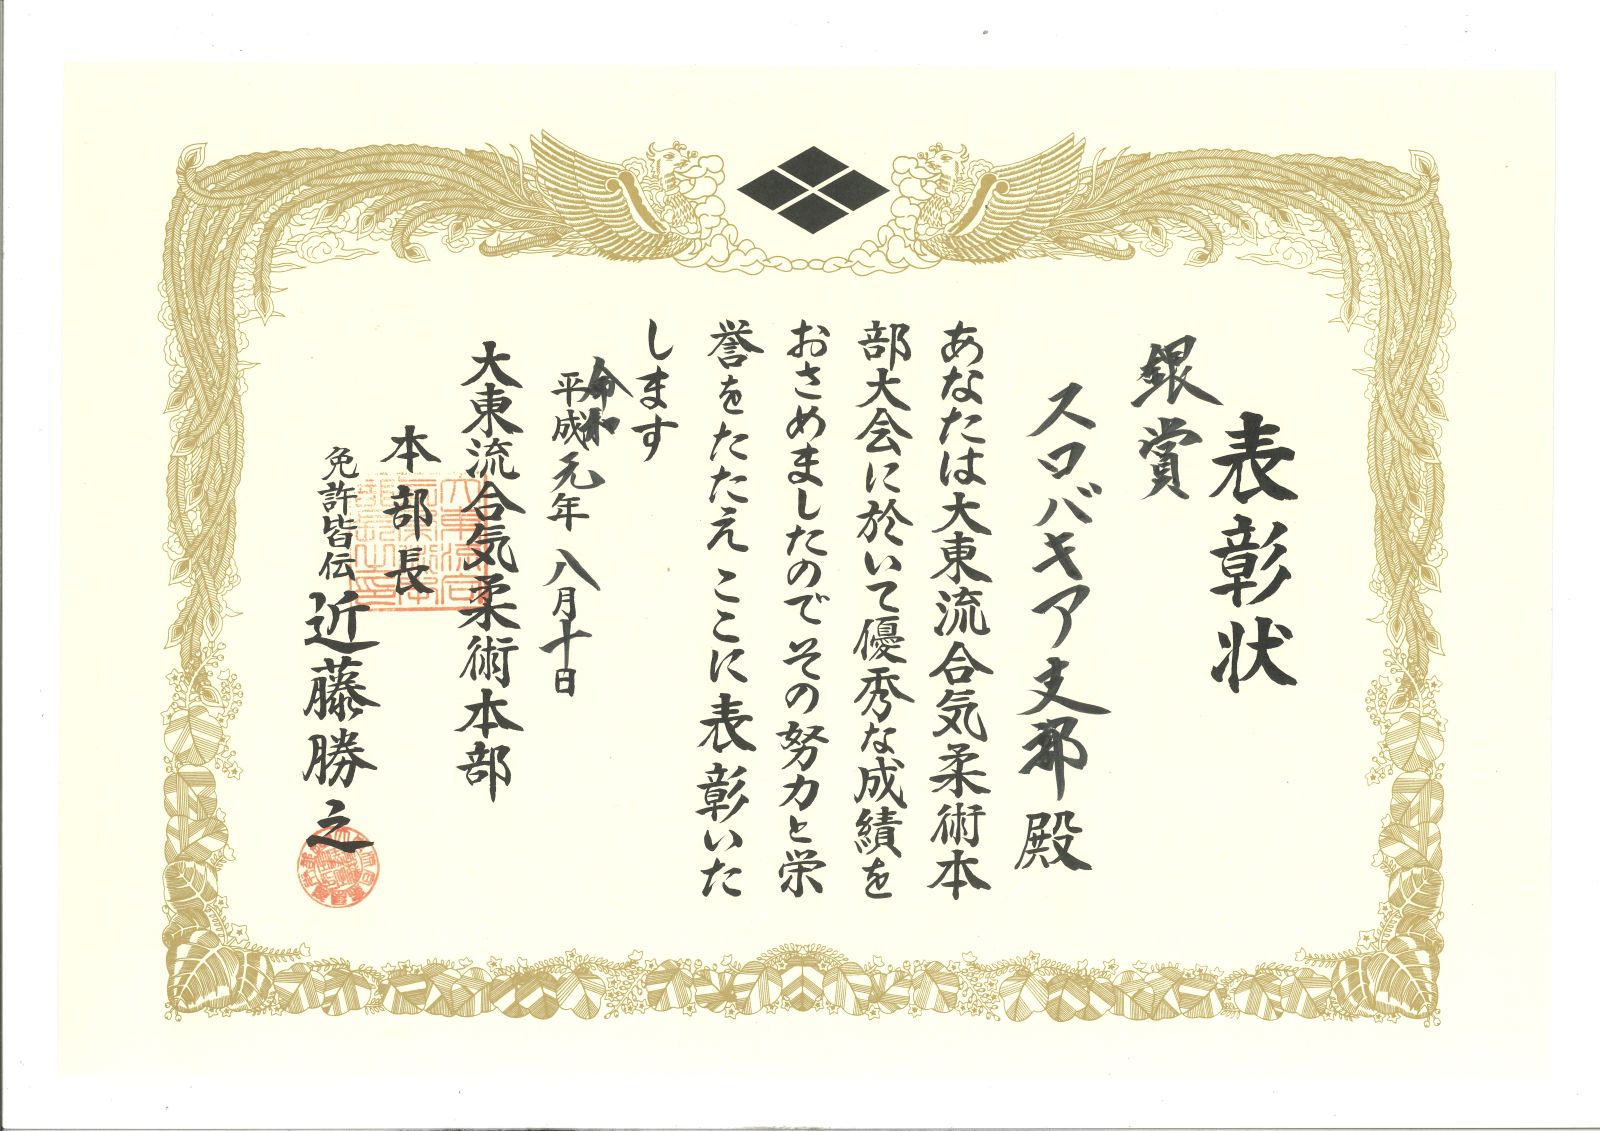 表彰状
銀賞
スロバキア支部殿
あなたは大東流合気柔術本
部大会に於いて優秀な成績を
おさめましたのでその努力と栄
誉をたたえここに表彰いた
します
令和
平成元年八月十日
大東流合気柔術本部
本部長
免許皆伝 近藤勝之